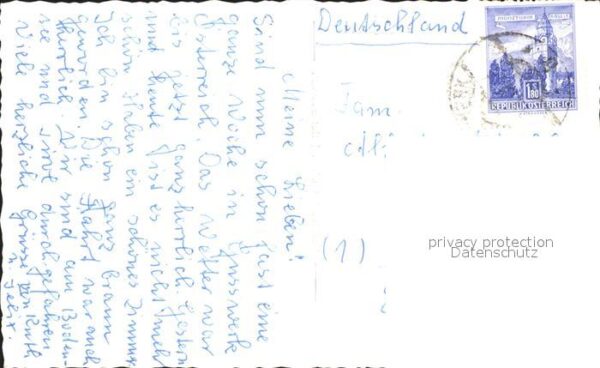 Meine Lieben!
Sind nun schon fast eine
ganze Woche in
Österreich. Das Wetter war
bis jetzt ganz herrlich. Gestern
und heute ist es nicht mehr
schön. Haben ein schönes Zimmer
Ich bin schon ganz braun
geworden. Die Fahrt war auch
herrlich. Wir sind am Boden-
see und durchgefahren
Viele herzliche Grüsse von Ruth
u. Felix.
Deutschland
Fam.
(1)
MÜNZTURM
1.80
REPUBLIK ÖSTERREICH
privacy protection
Datenschutz